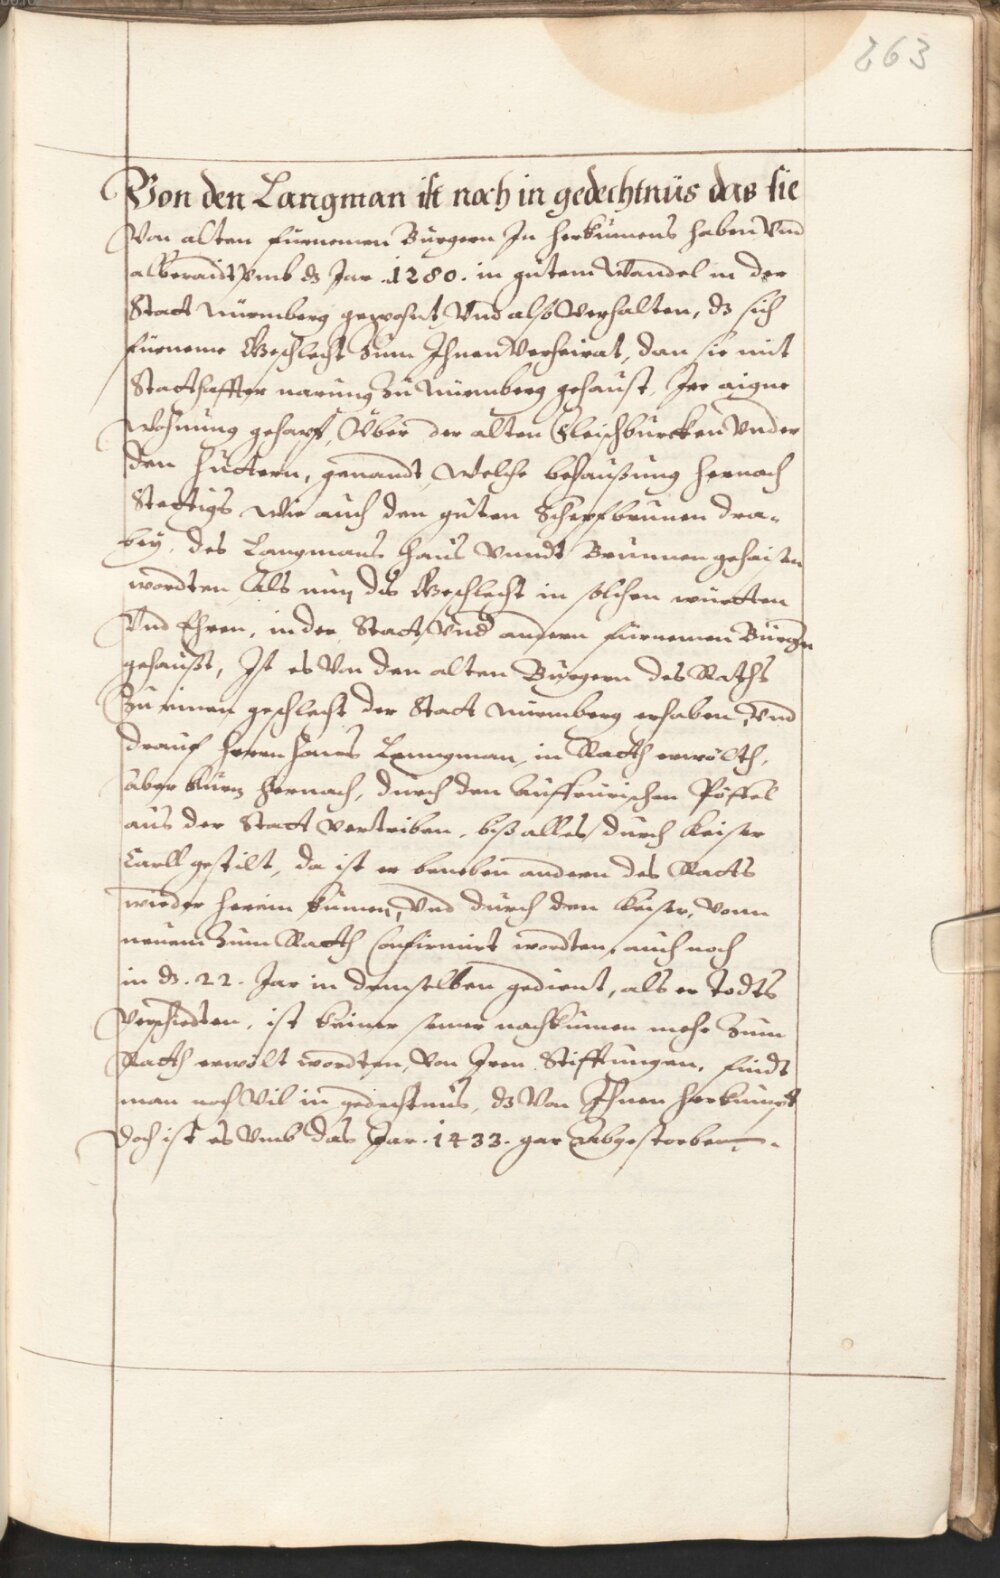 263
Von den Langman ist noch in gedechtnüs das sie
Von alten fürnemen Bürgern Ir herkumens haben Vnd
albraidt Vmb dz Jar .1280. in gutem Wandel in der
Statt Nürmberg gewohnt, Vnd also Verhalten, dz sich
fürneme Geschlecht Zum Ihnen Verheirat, dan sie mit
Statthaffter narung Zu Nürmberg gehaust, Ire aigne
Wohnung gehapt, Über der alten Fleischbrucken Vnder
den Huttern, genandt, Welche behaußung hernach
Stettigs Wie auch den guten Schepfbrunen dra-
bey, des Langmans Haus Vnndt Brunnen gehaisen
wordten, Als nun dis Geschlecht in solchen württen
Vnd Ehren, in der Statt Vnd andern fürnemen Bürgern
gehaußt, Ist es Von den alten Bürgern des Raths
Zu einen geschlecht der Statt Nürmberg erhaben, Vnd
drauf Herrn Hans Langman, in Rath erwölth,
aber kurtz Hernach, durch den auffrürischen Pöffel
aus der Statt Vertriben, biß alles durch Keiser
Carll gestilt, da ist er beneben andern des Ratts
wieder herein kumen, Vnd durch den Keiser, Vonn
neuem Zum Rath Confirmirt wordten, auch noch
in dz .22. Jar in demselben gedient, als er Todts
Verschiedten, ist keiner seiner nachkumen mehr Zum
Rath erwölt wordten, Von Iren Stifftungen, findt
man noch Vil in gedechtnus, dz Von Ihnen herkumpt
doch ist es Vmb das Jar .1433. gar Abgestorben.